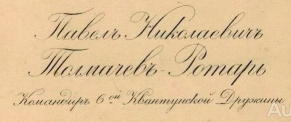 Павелъ Николаевичъ
Толмачевъ-Ротарь
Командиръ 6ой Квантунской Дружины